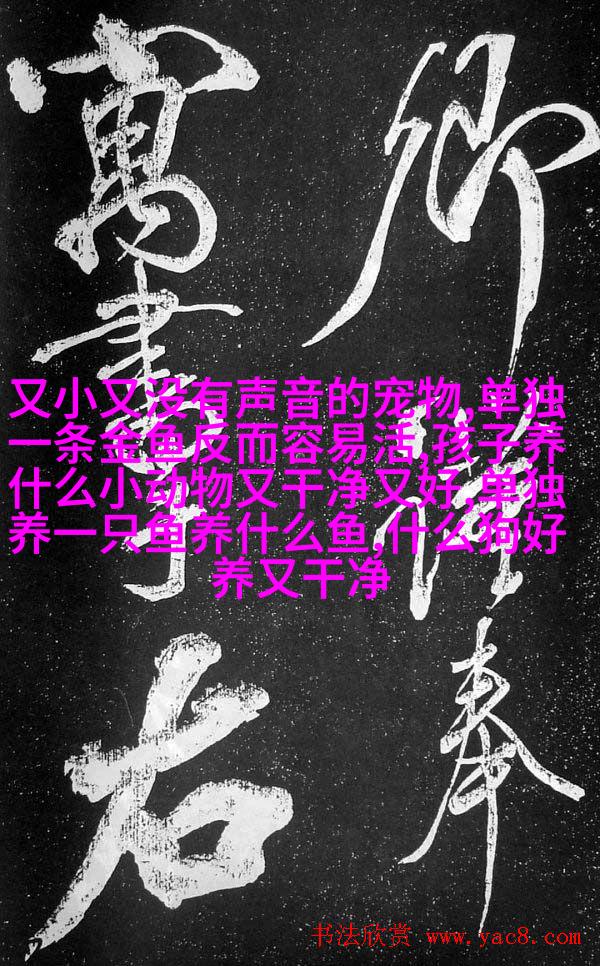 卿奉
寓書右
又小又没有声音的宠物,单独
一条金鱼反而容易活,孩子养
什么小动物又干净又好,单独
养一只鱼养什么鱼,什么狗好
养又干净
书法欣赏 www.yac8.com